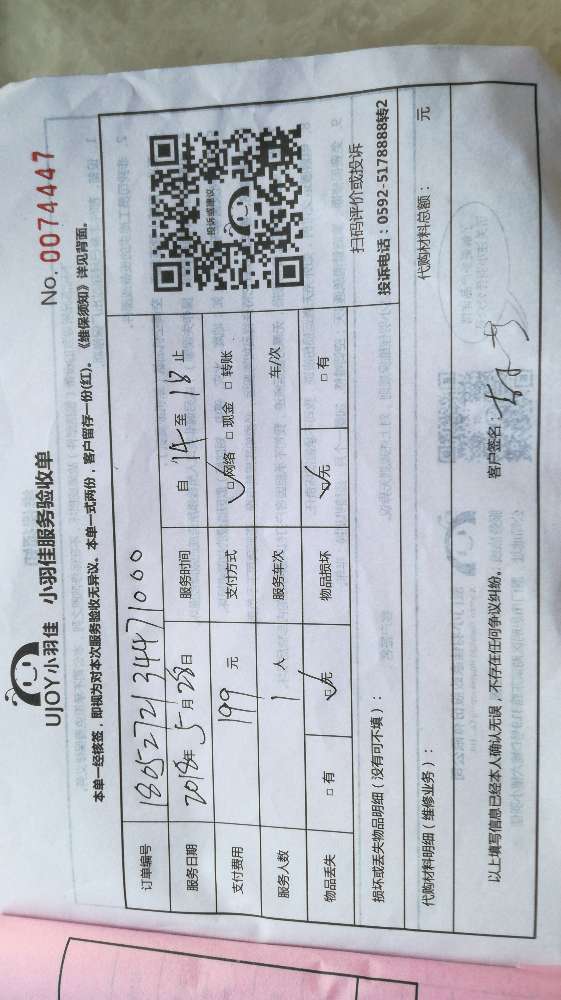 UJOY小羽佳 小羽佳服务验收单
No. 0074447
本单一经核签，即视方对本次服务验收无异议。本单一式两份，客户留存一份(红)。《维保须知》详见背面。
订单编号 180527213447 1000
服务日期 2018年5月28日 服务时间 自14至18止
支付费用 199元 支付方式 ☑网络 □现金 □转账
服务人数 1人 服务车次 车/次
物品丢失 □有 ☑无 物品损坏 ☑无 □有
投诉或建议
扫码评价或投诉
投诉电话：0592-5178888转2
损坏或丢失物品明细（没有可不填）：
代购材料明细（维修业务）： 代购材料总额： 元
以上填写信息已经本人确认无误，不存在任何争议纠纷。 客户签名：